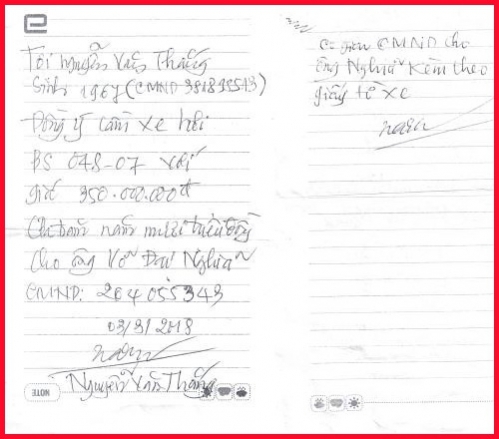 Tôi Nguyễn Văn Thắng
Sinh 1967 (CMND 381895513)
Đồng ý cầm xe hơi
BS 048-07 với
giá 350.000.000đ
Cho ông Võ Đại Nghĩa
CMND: 264055343
03/31 2018
Nguyễn Văn Thắng
NOTE
có giao CMND cho
ông Nghĩa kèm theo
giấy tờ xe